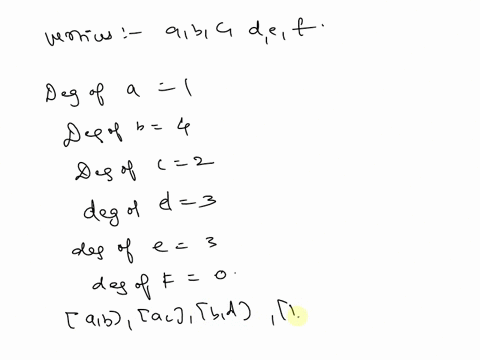 vertices :- a, b, c, d, e, f.
Deg of a = 1
Deg of b = 4
Deg of c = 2
deg of d = 3
deg of e = 3
deg of F = 0.
[a,b), [a,c], [b,d) , [